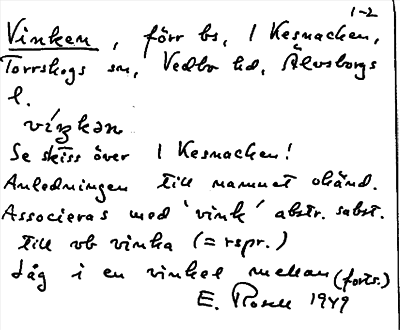 1-2
Vinken, förr bs, 1 Kesnacken,
Torrskogs sn, Vedbo hd, Älvsborgs
l.
víŋkən
Se skiss över 1 Kesnacken!
Anledningen till namnet okänd.
Associeras med 'vink' abstr. subst.
till vb vinka (= rspr.)
Låg i en vinkel mellan (forts.)
E. Rosell 1949